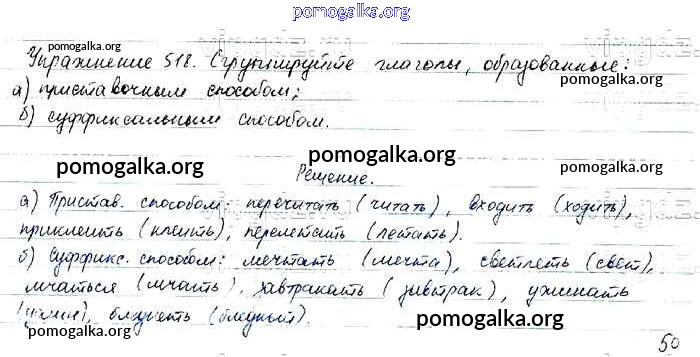 pomogalka.org
Упражнение 518. Сгруппируйте глаголы, образованные:
pomogalka.org
pomogalka.org
а) приставочным способом;
б) суффиксальным способом.
pomogalka.org
pomogalka.org
pomogalka.org
Решение.
а) Пристав. способом: перечитать (читать), входить (ходить),
приклеить (клеить), перелетать (летать).
б) Суффикс. способом: мечтать (мечта), светлеть (свет),
мчаться (мчать), завтракать (завтрак), ужинать
(ужин), бледнеть (бледный).
pomogalka.org
pomogalka.org
50